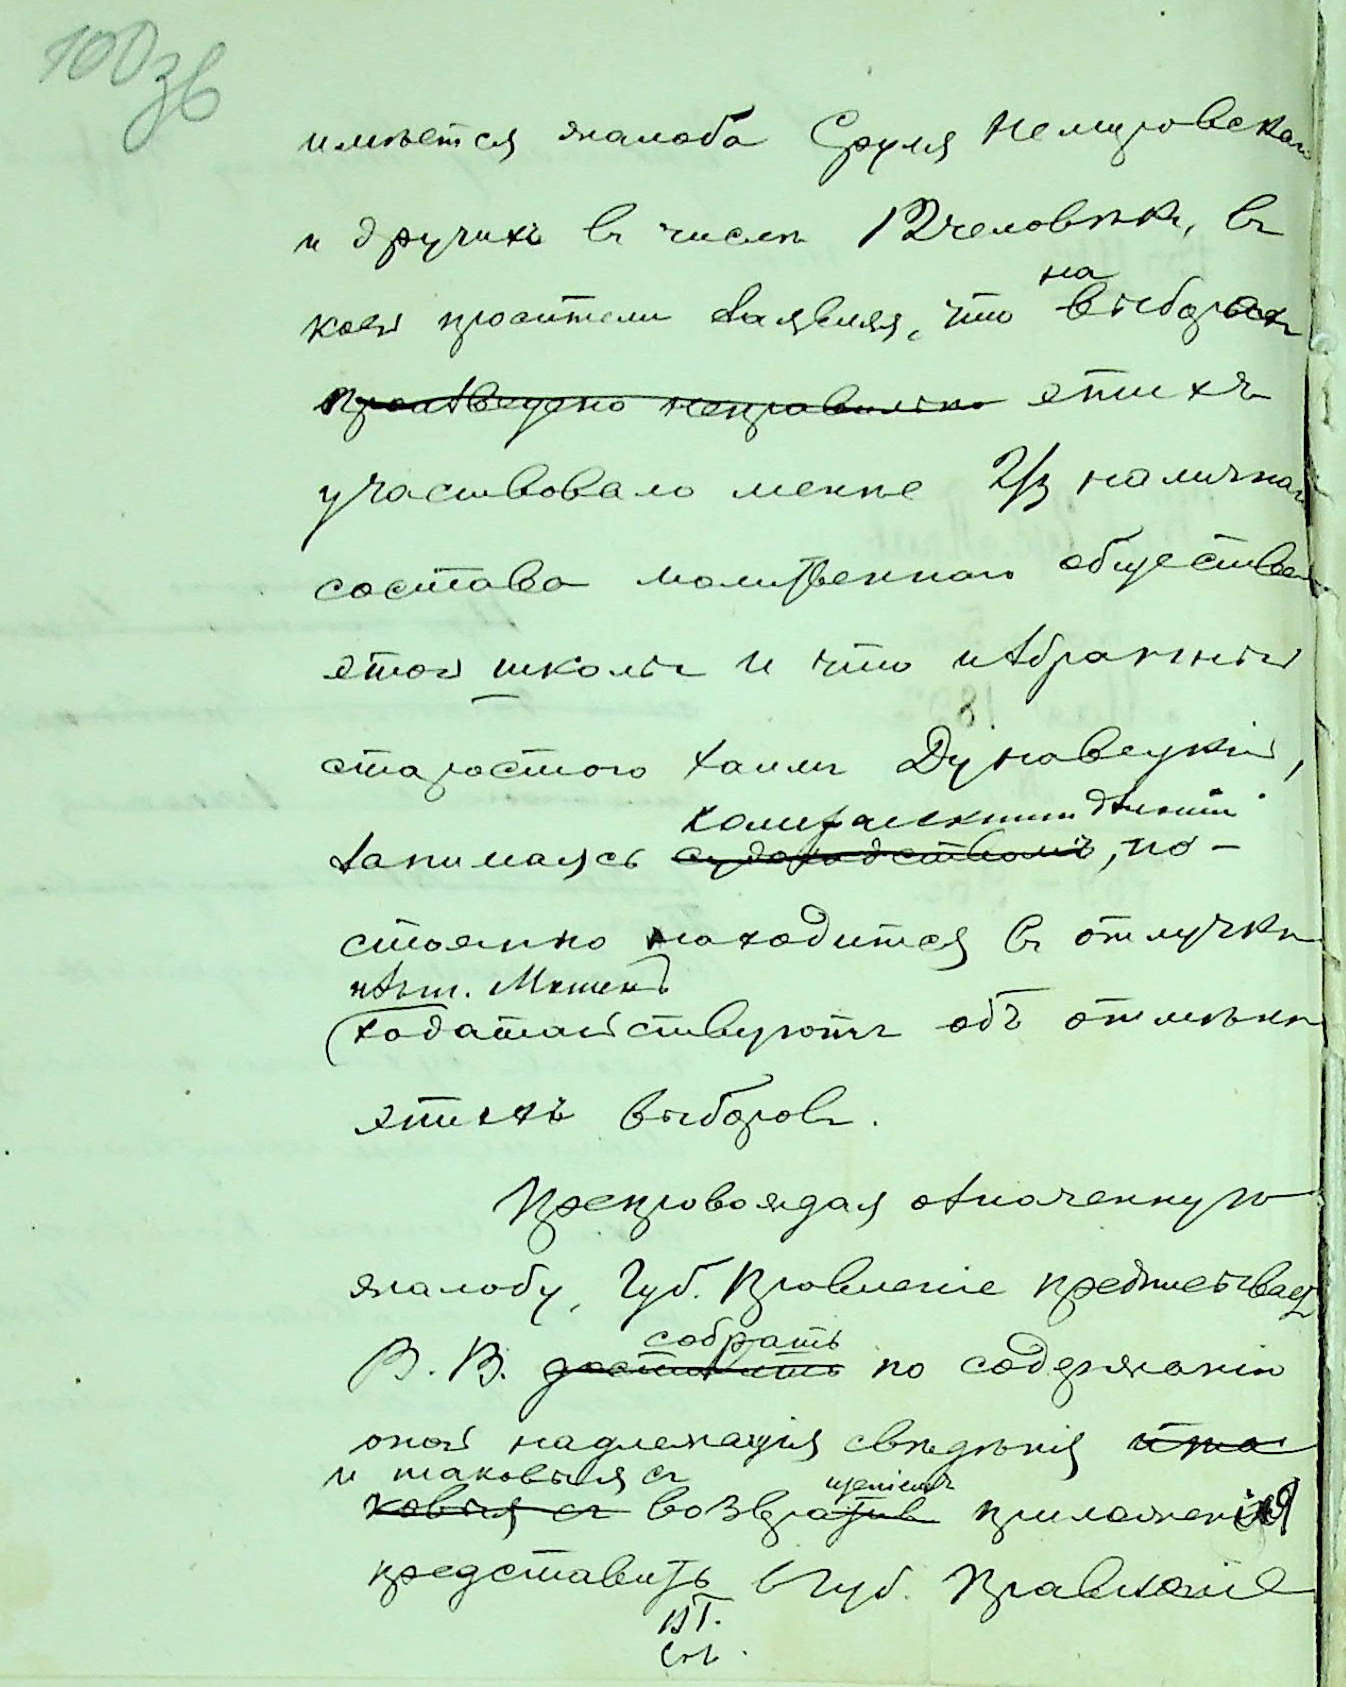 100 зв
имѣется жалоба Сруля Немировскаго
и другихъ въ числѣ 12 человѣкъ, въ
коей просители заявляя, что на выборахъ
произведено неправильно этихъ
участвовало менѣе 2/3 наличнаго
состава молитвеннаго общества
этой школы и что избранный
старостою Хаимъ Дунавецкій,
занимаясь
судоходствомъ, по-
стоянно находится въ отлучкѣ
изъ м.
ходатайствуютъ объ отмѣнѣ
этихъ выборовъ.
Препровождая означенную
жалобу, Губ. Правленіе предписываетъ
собрать
В. В. доставить по содержанію
оной надлежащія свѣдѣнія и та
и таковыя съ
ковыя съ возвра щеніемъ приложенія
представить въ Губ. Правленіе